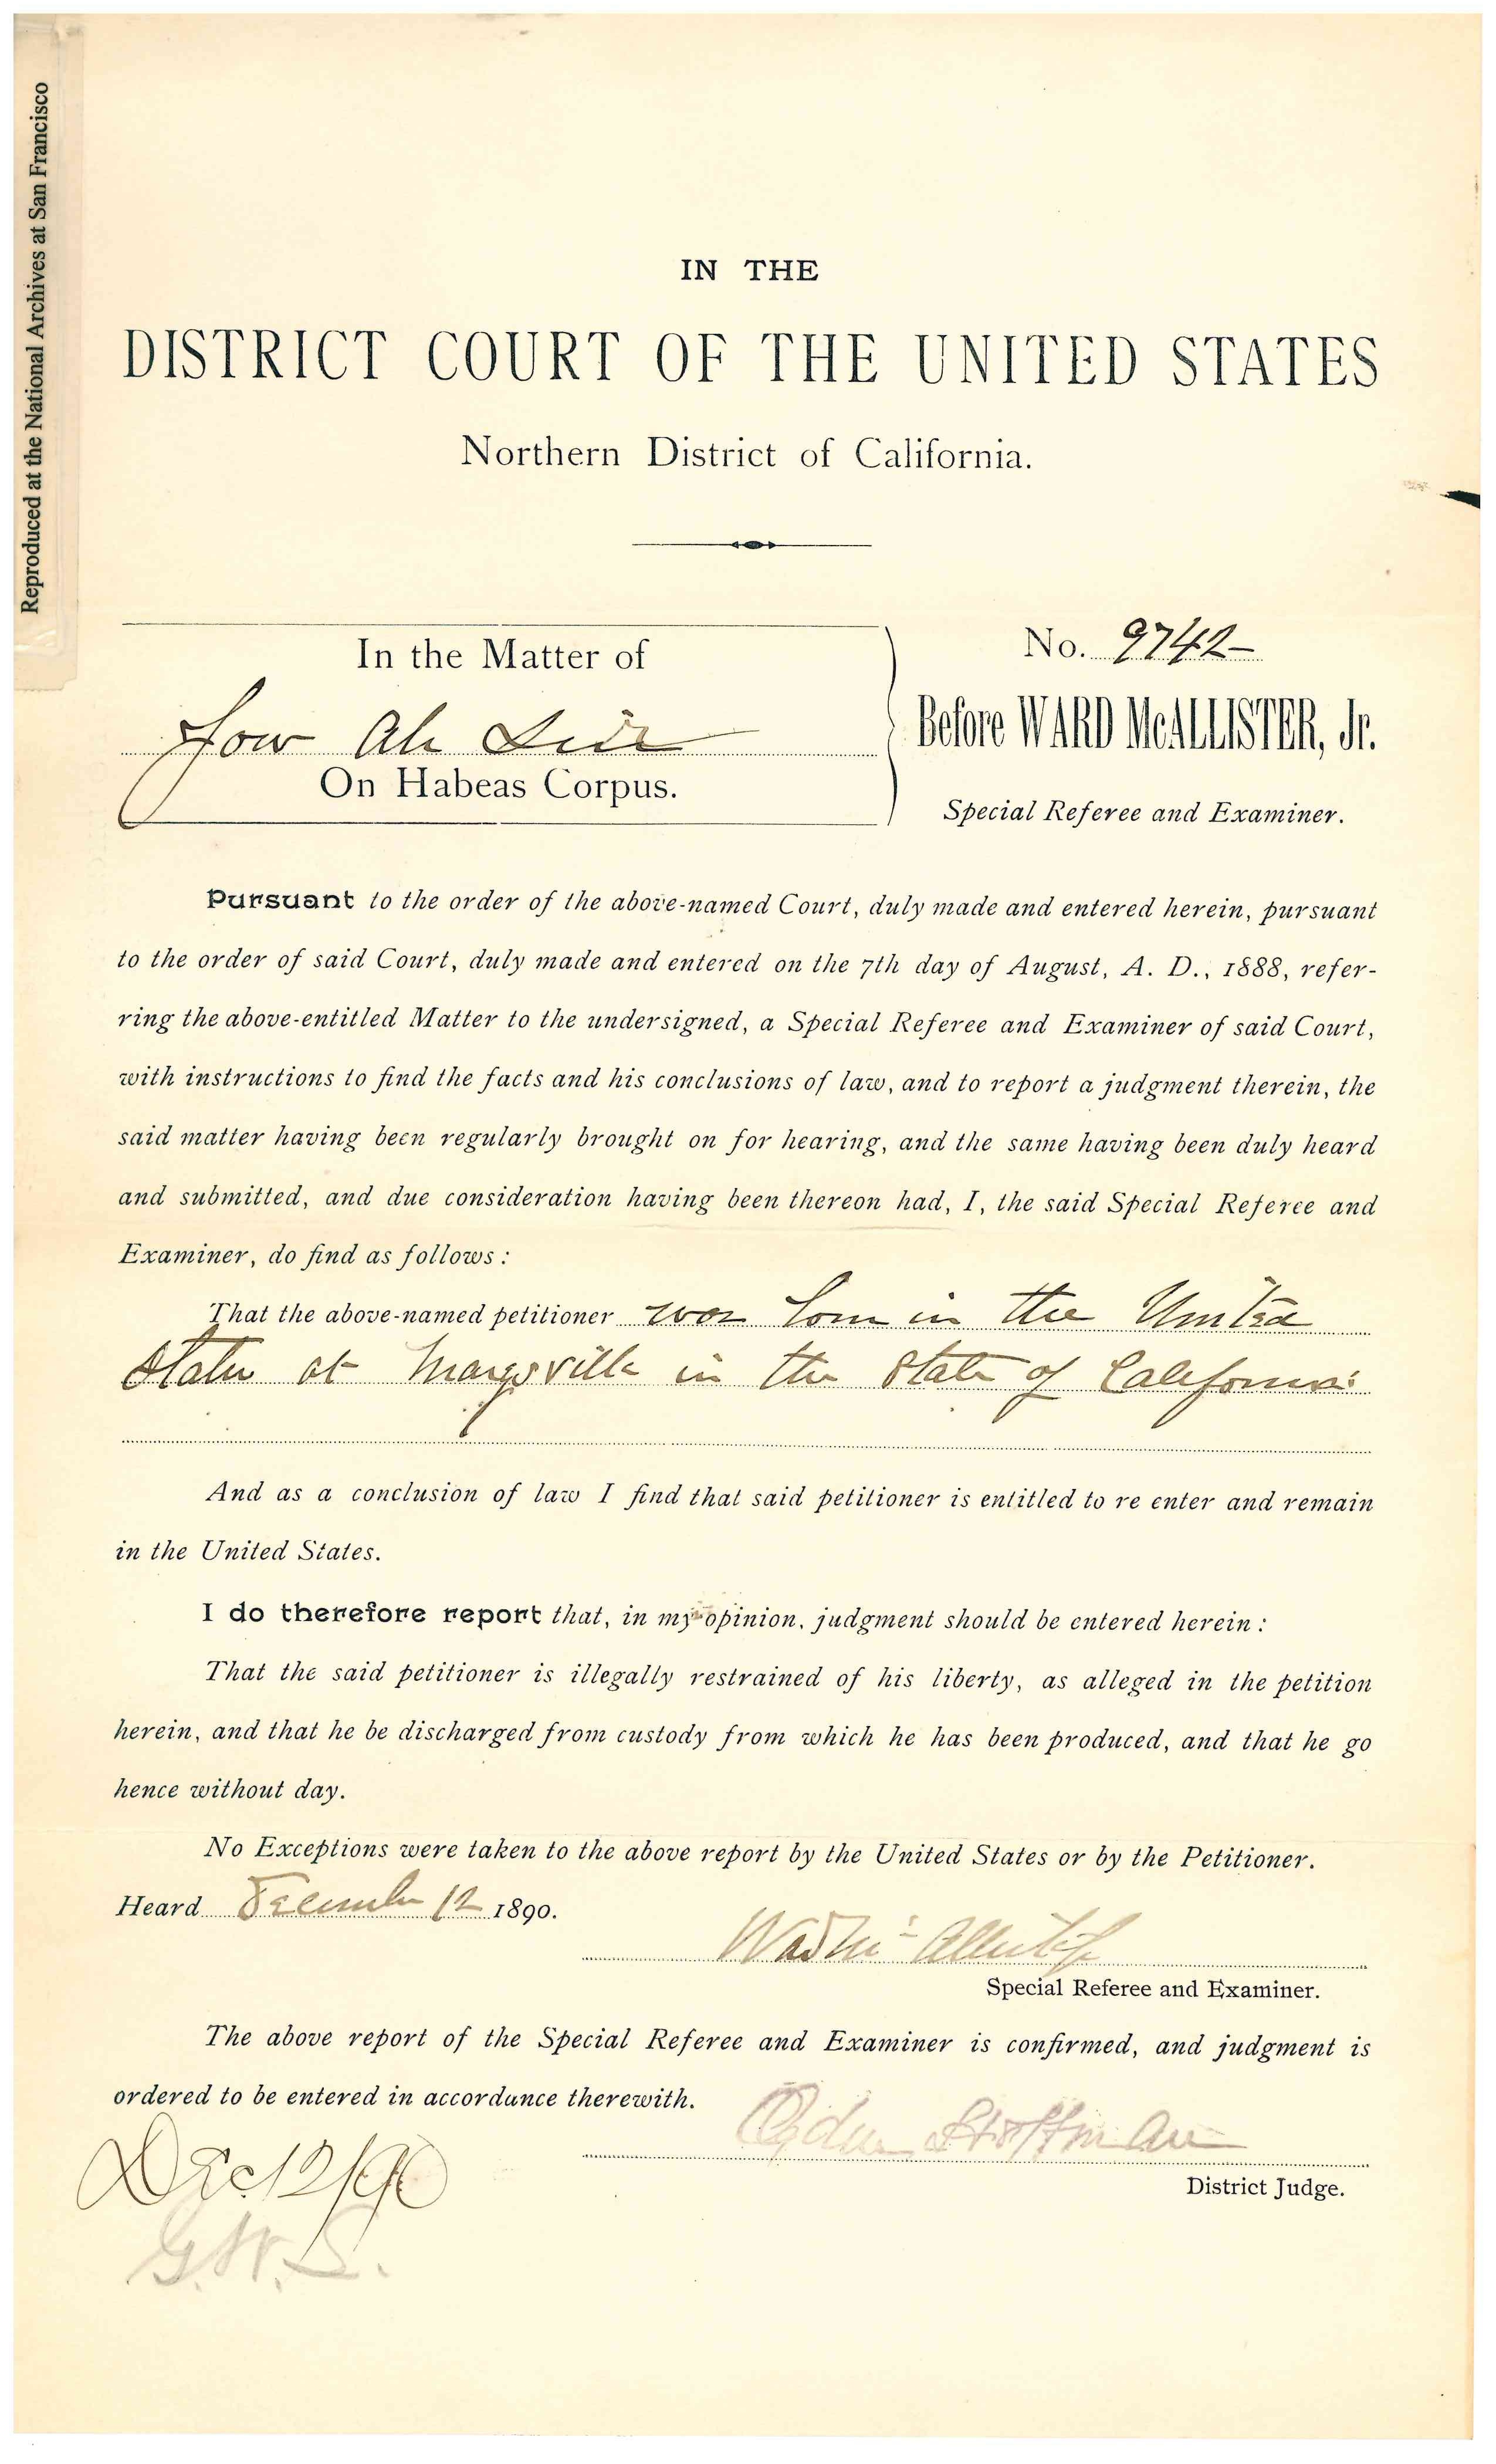 Reproduced at the National Archives at San Francisco
IN THE
DISTRICT COURT OF THE UNITED STATES
Northern District of California.
In the Matter of
Ah
On Habeas Corpus.
No. 9742
Before WARD McALLISTER, Jr.
Special Referee and Examiner.
Pursuant to the order of the above-named Court, duly made and entered herein, pursuant
to the order of said Court, duly made and entered on the 7th day of August, A. D., 1888, refer-
ring the above-entitled Matter to the undersigned, a Special Referee and Examiner of said Court,
with instructions to find the facts and his conclusions of law, and to report a judgment therein, the
said matter having been regularly brought on for hearing, and the same having been duly heard
and submitted, and due consideration having been thereon had, I, the said Special Referee and
Examiner, do find as follows:
That the above-named petitioner was born in the United
States at Marysville in the State of California:
And as a conclusion of law I find that said petitioner is entitled to re enter and remain
in the United States.
I do therefore report that, in my opinion, judgment should be entered herein:
That the said petitioner is illegally restrained of his liberty, as alleged in the petition
herein, and that he be discharged from custody from which he has been produced, and that he go
hence without day.
No Exceptions were taken to the above report by the United States or by the Petitioner.
Heard December 12 1890.
Ward McAllister Jr
Special Referee and Examiner.
The above report of the Special Referee and Examiner is confirmed, and judgment is
ordered to be entered in accordance therewith.
Ogden Hoffman
District Judge.
Dec 12/90
G.W.S.